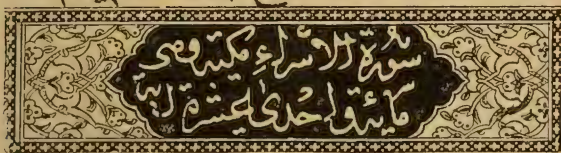 سُورَةُ الْأَسْرَاءِ مَكِّيَّة وَهِيَ
مِائَة وَاِحْدٰى عَشْرَة اٰيَة